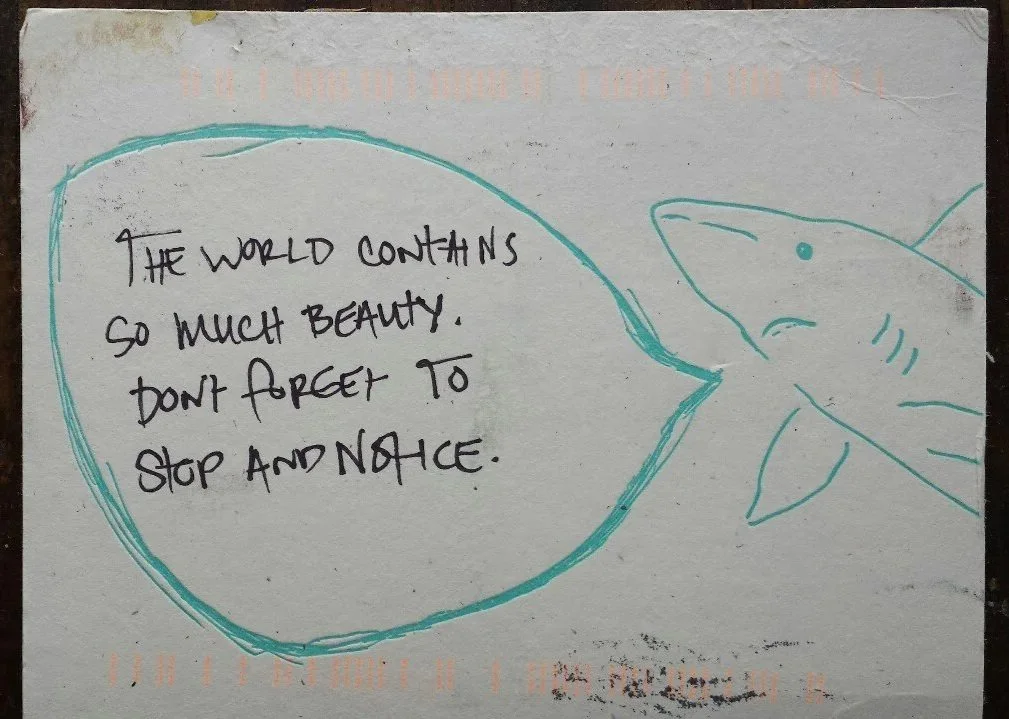 THE WORLD CONTAINS
SO MUCH BEAUTY.
DONT FORGET TO
STOP AND NOTICE.